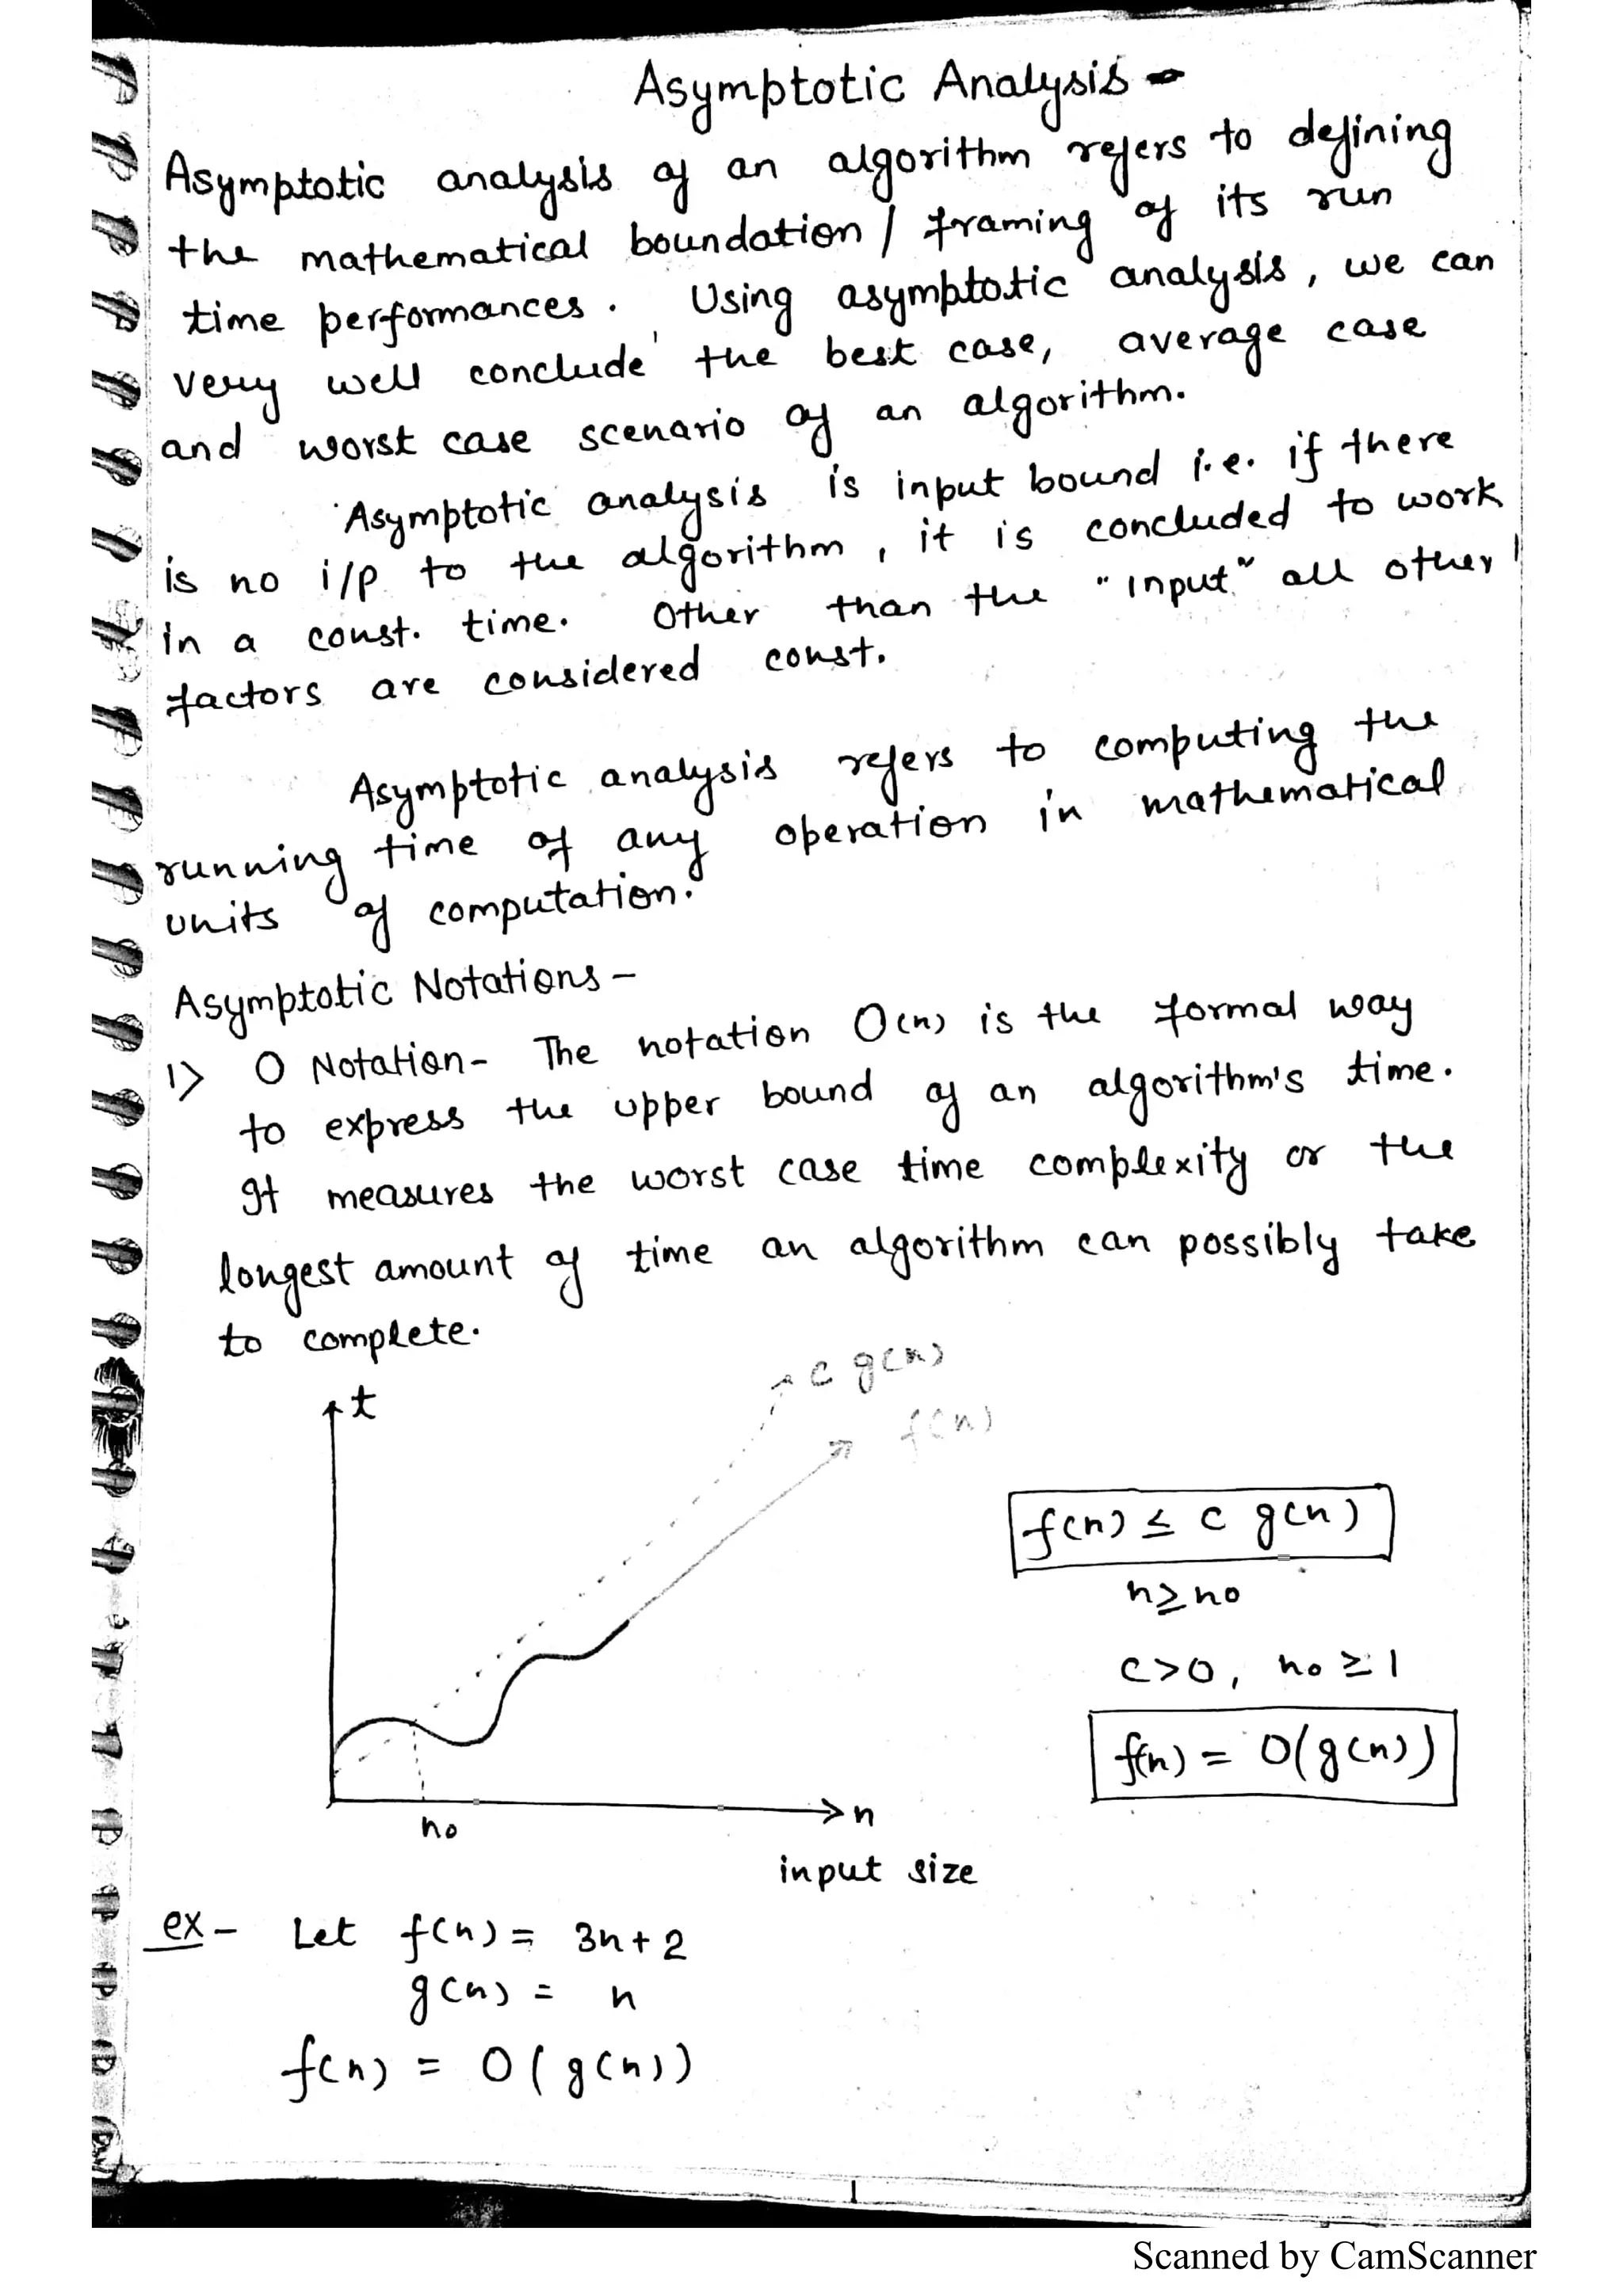 Asymptotic Analysis -
Asymptotic analysis of an algorithm refers to defining
the mathematical boundation / framing of its run
time performances. Using asymptotic analysis, we can
very well conclude the best case, average case
and worst case scenario of an algorithm.
Asymptotic analysis is input bound i.e. if there
is no i/p to the algorithm, it is concluded to work
in a const. time. Other than the "input" all other
factors are considered const.
Asymptotic analysis refers to computing the
running time of any operation in mathematical
units of computation.
Asymptotic Notations -
1> O Notation - The notation O(n) is the formal way
to express the upper bound of an algorithm's time.
It measures the worst case time complexity or the
longest amount of time an algorithm can possibly take
to complete.
c g(n)
t
f(n)
f(n) ≤ c g(n)
n ≥ n0
c > 0, n0 ≥ 1
f(n) = O(g(n))
n
n0
input size
ex - Let f(n) = 3n + 2
g(n) = n
f(n) = O(g(n))
1
Scanned by CamScanner